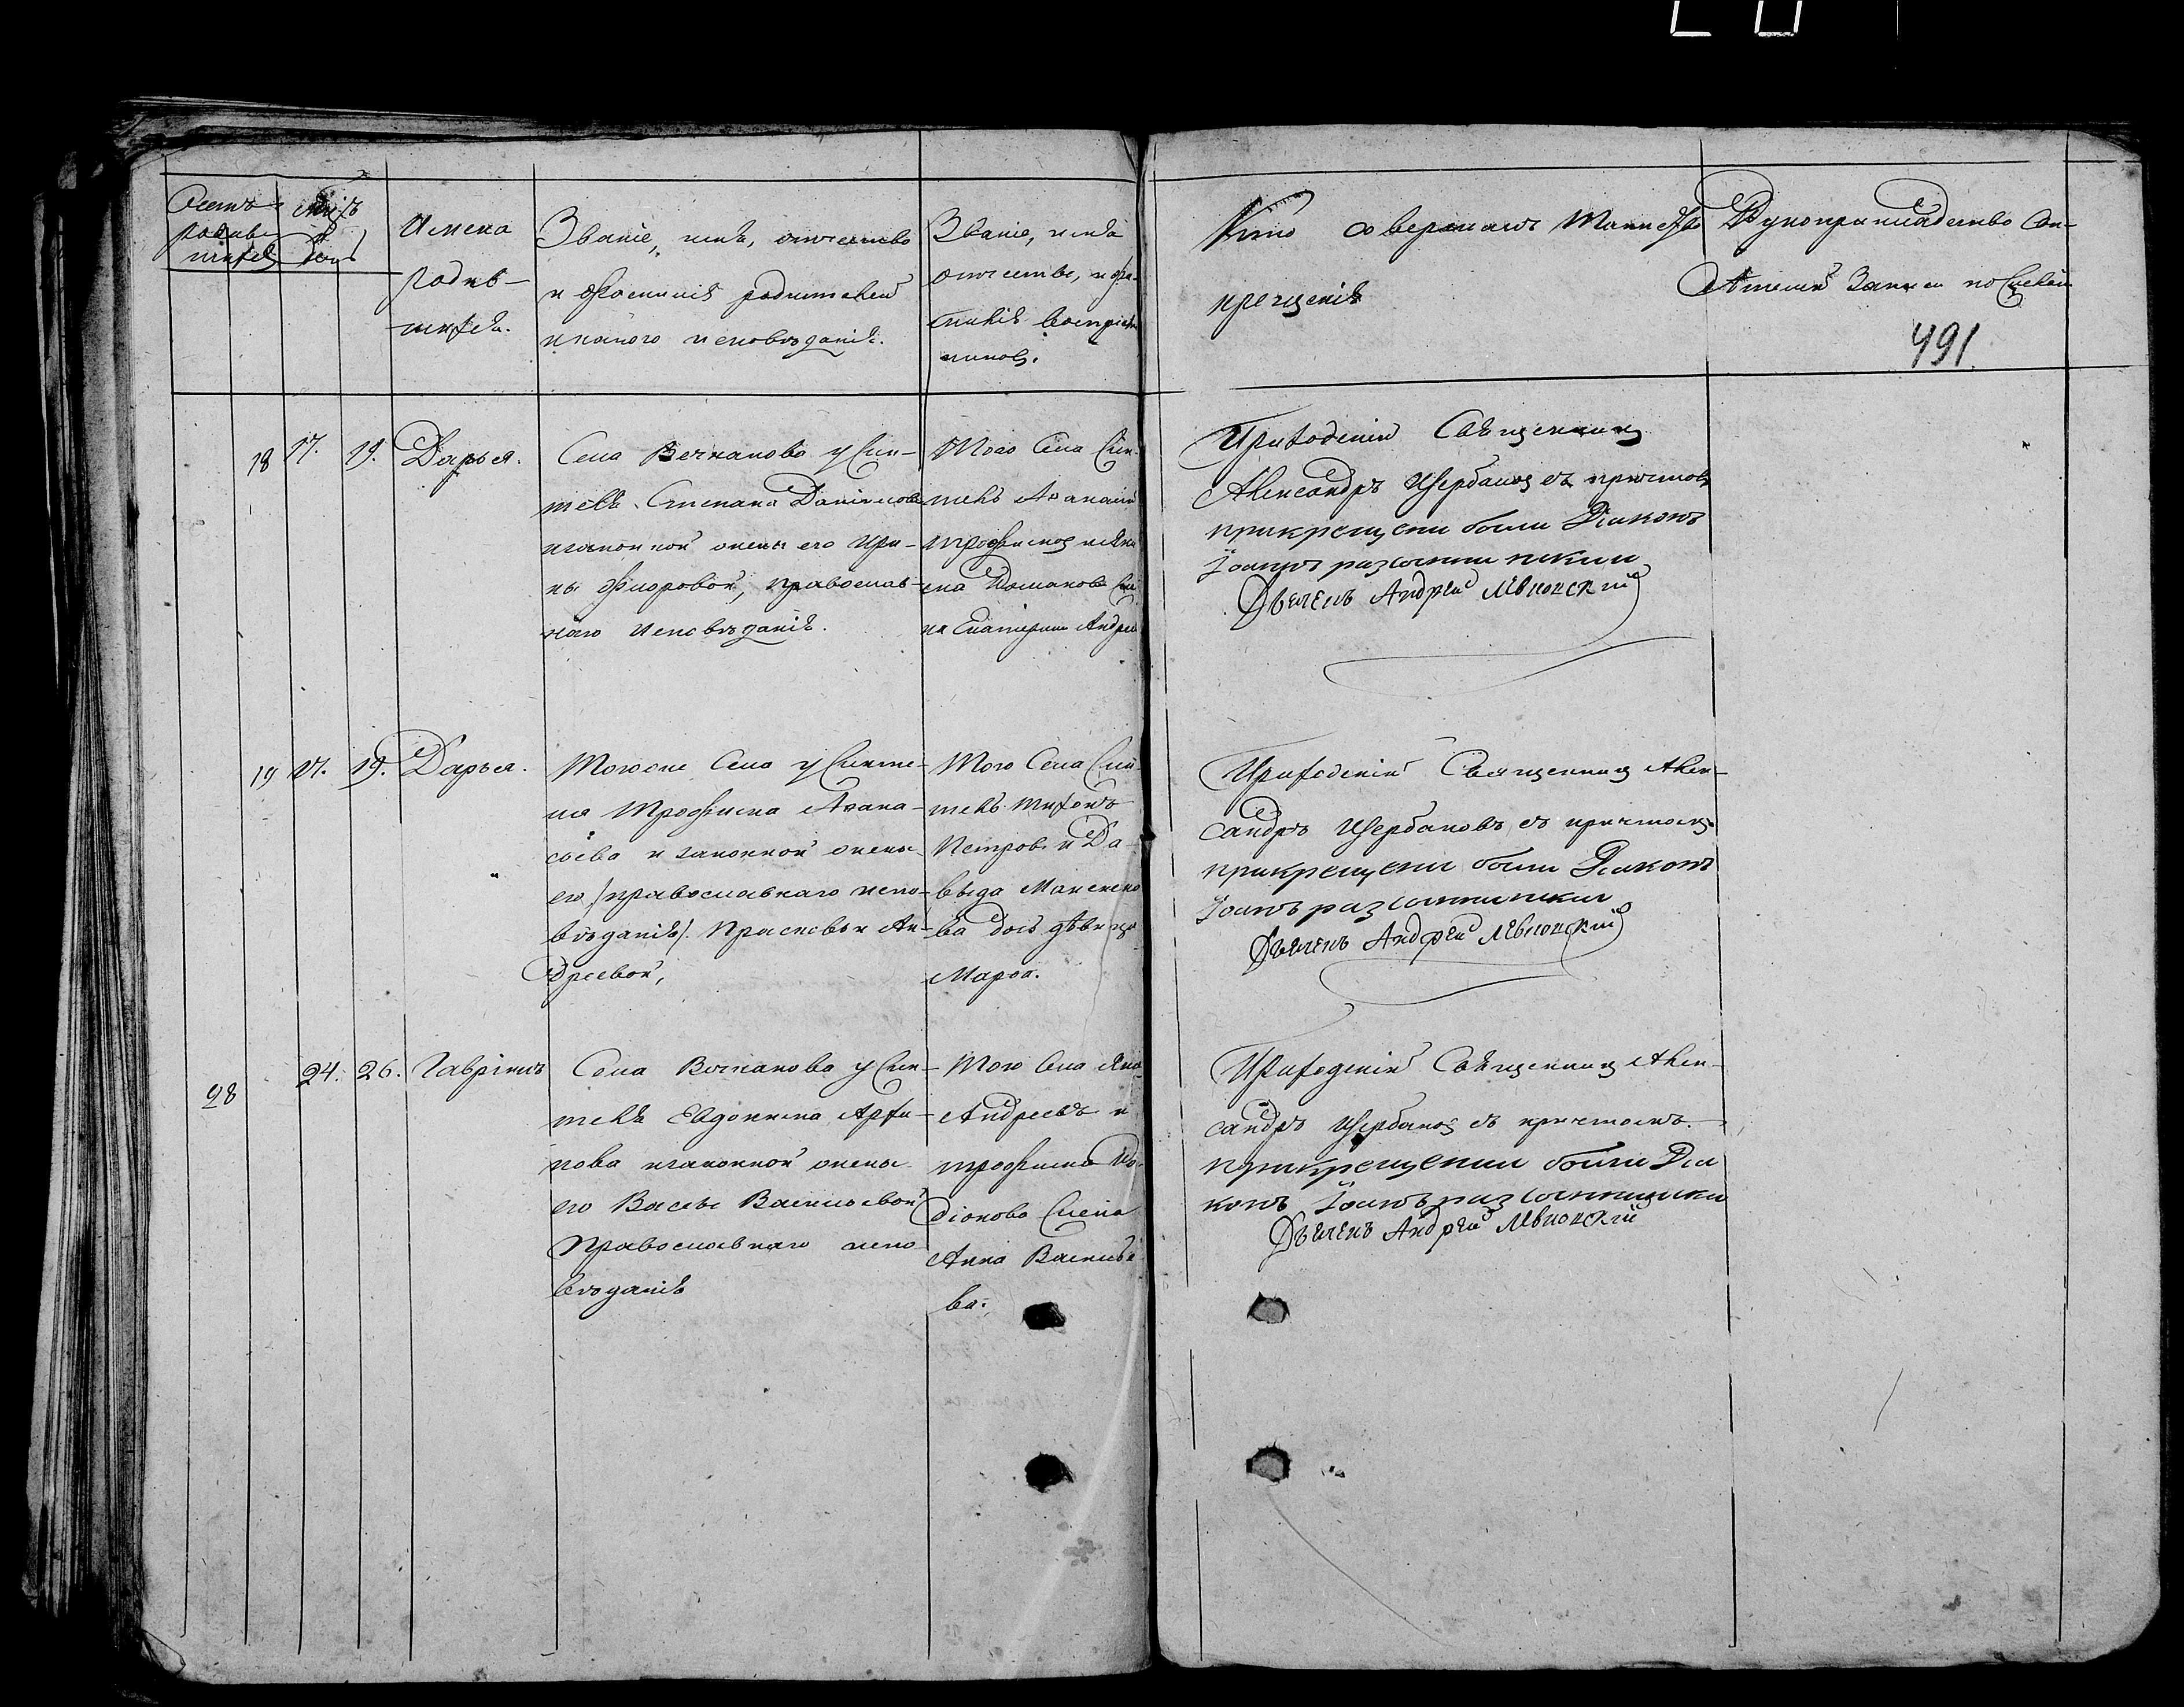 Счетъ родив-шихся
Мѣсяцъ и день
Имена
родив-
шихся.
Званіе, имя, отчество
и фамилія родителей
и какого исповѣданія.
Званіе, имя
отчество, и фа-
милія воспріем-
никовъ.
Кто совершалъ таинство
крещенія
Рукоприкладство сви-
дѣтелей записи по желанію
491.
18 17. 19. Дарья.
Села Вечканова у Жи-
теля Степана Данилова
и законной жены его Ири-
ны Флоровой, православ-
наго исповѣданія.
Того Села Жи-
тель Аѳанасій
Трофимовъ и
Романова
на Екатерина Андрее
Приходскій Священникъ
Александръ Щербаковъ съ причтомъ
при крещеніи были Діаконъ
Іоаннъ
Дьячекъ Андрей Левионскій
19 17. 19. Дарья.
Того же Села у Жите-
ля Трофима Аѳана-
сьева и законной жены
его /православнаго испо-
вѣданія/. Прасковьи Ан-
дреевой,
Того Села Жи-
тель Тихонъ
Петровъ и Да-
выда Максимо
ва дочь дѣвица
Марѳа.
Приходскій Священникъ Алек-
сандръ Щербаковъ съ причтомъ
при крещеніи были Діаконъ
Іоаннъ
Дьячекъ Андрей Левионскій
28 24. 26. Гавріилъ
Села Вечканова у Жи-
теля Евдокима Архи-
пова и законной жены
его Васеы Васильевой
Православнаго испо
вѣданія
Того Села
Андреевъ и
Трофима Ро-
діонова Жена
Анна Василье
ва.
Приходскій Священникъ Алек-
сандръ Щербаковъ съ причтомъ.
при крещеніи были Діа
конъ Іоаннъ
Дьячекъ Андрей Левионскій